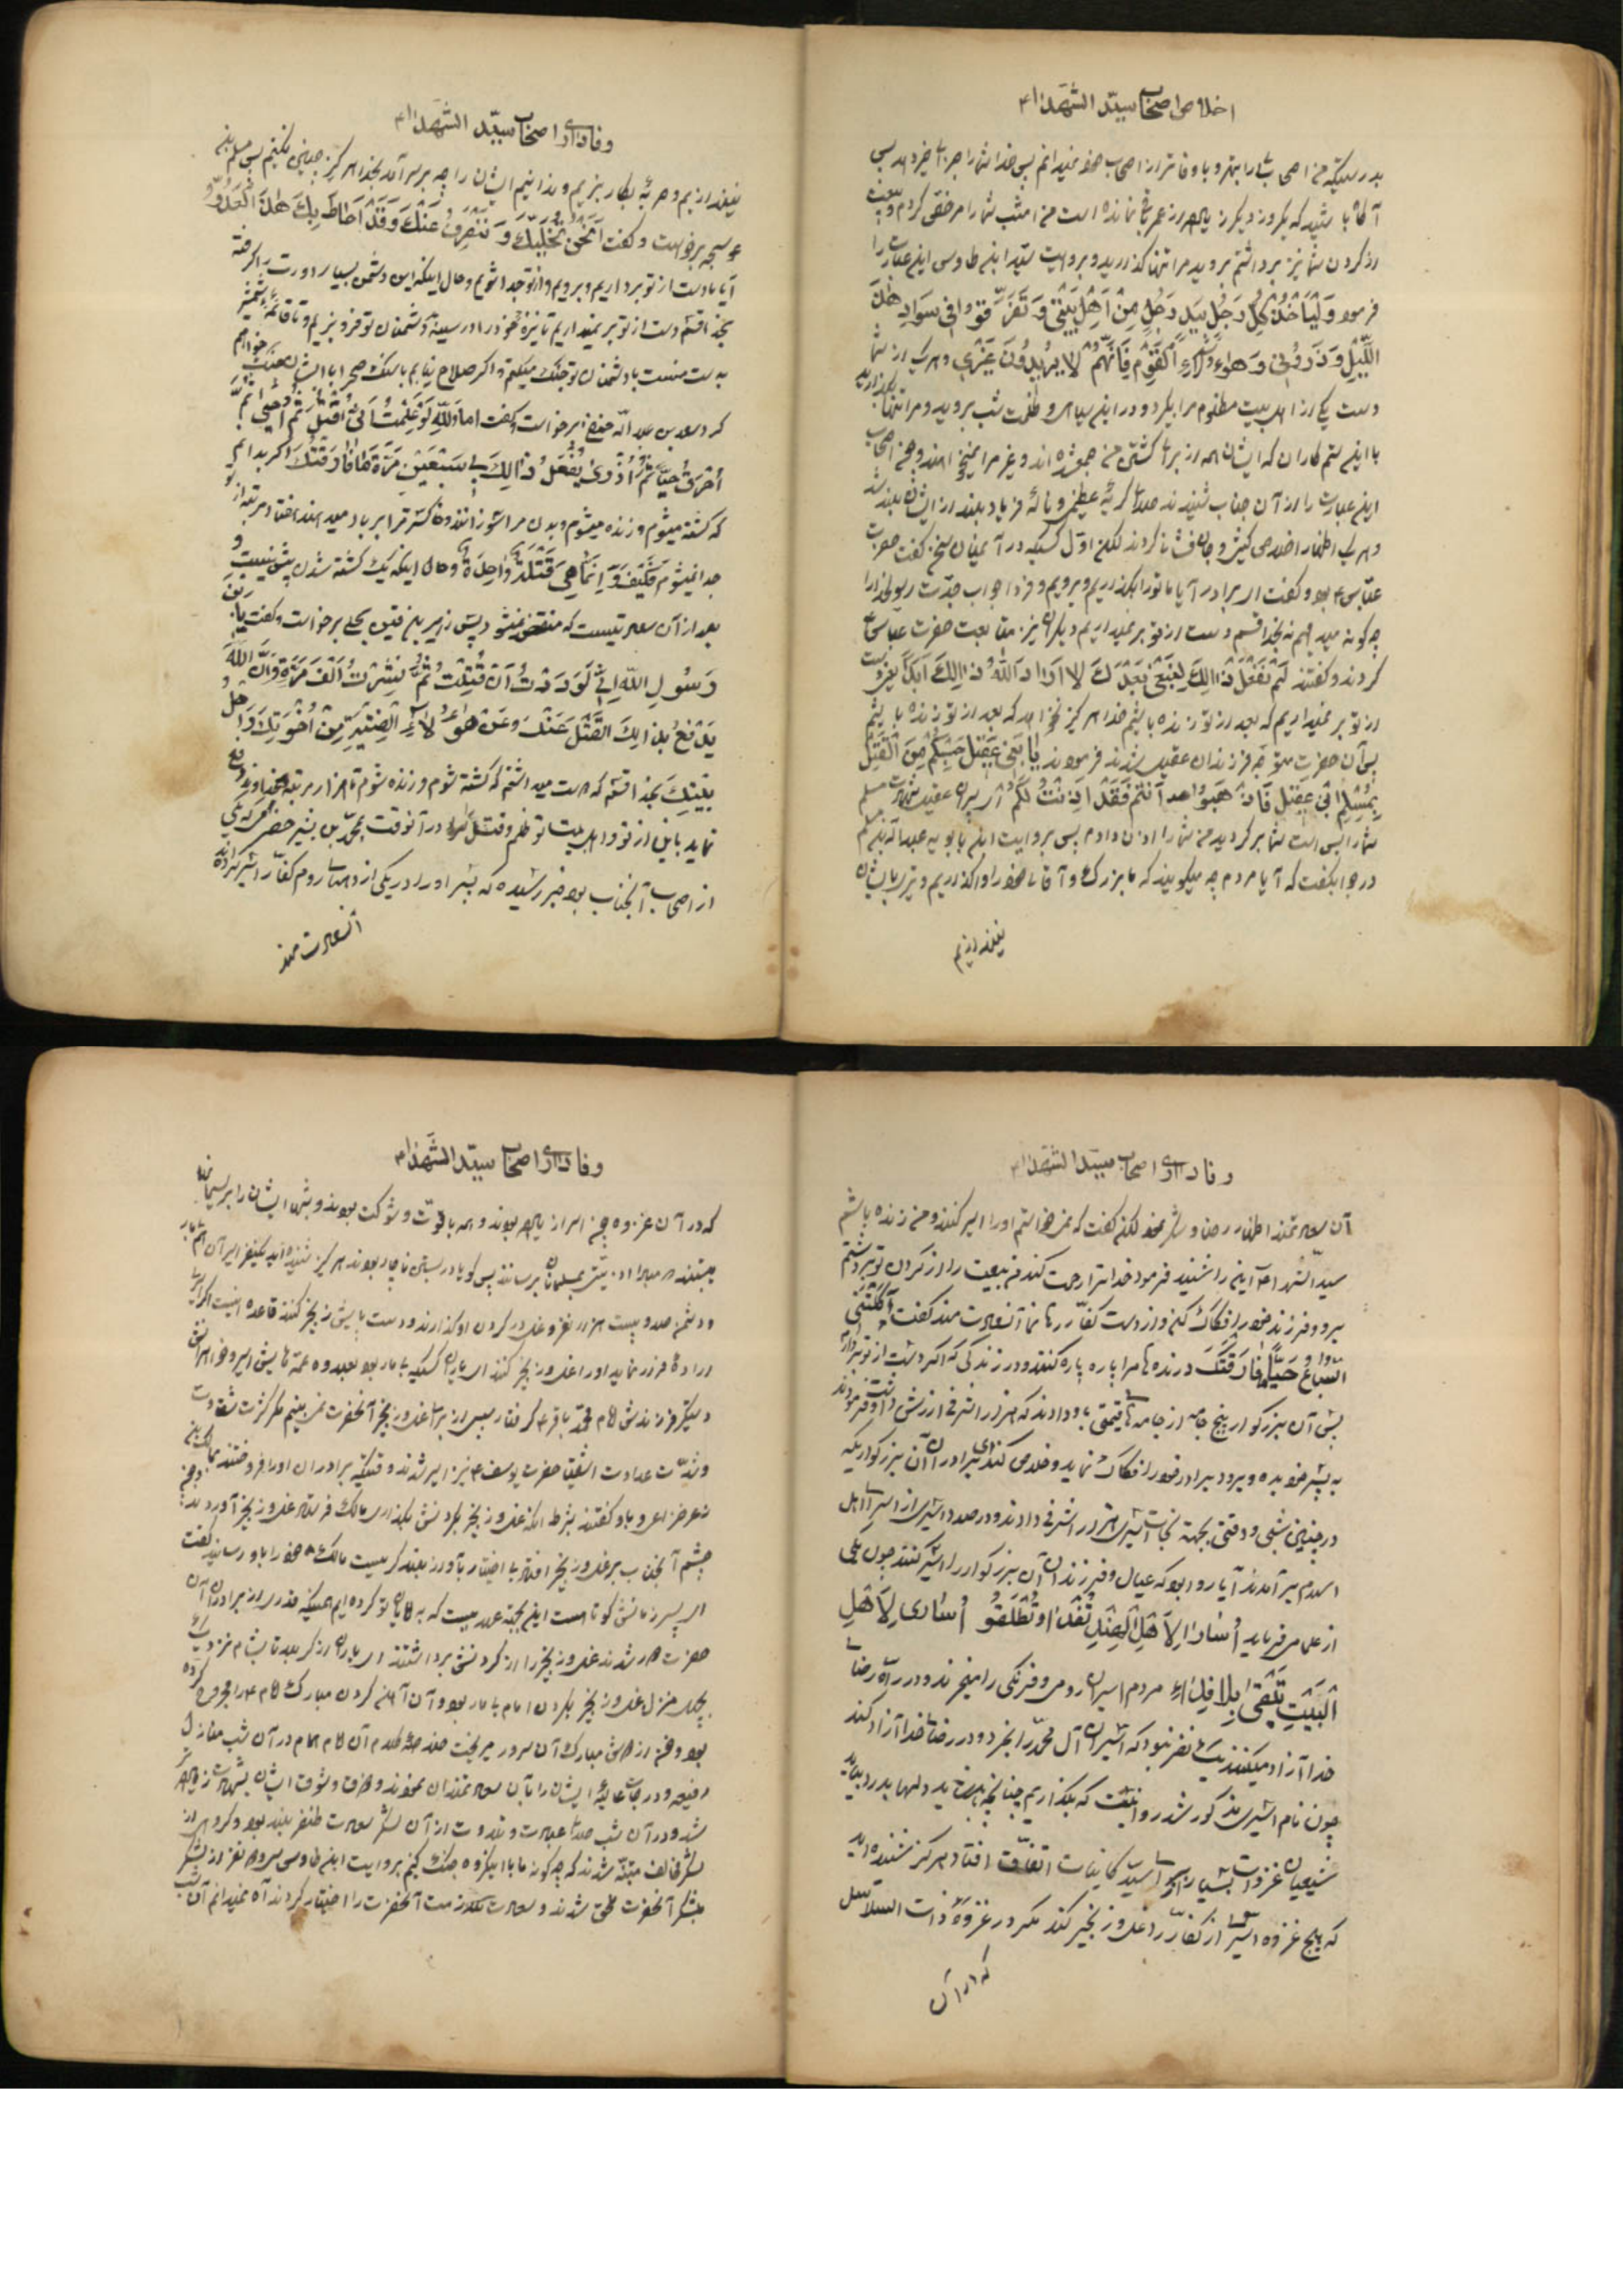 اخلاص اصحاب سید الشهداء
بدرستیکه من اصحابی را بهتر و با وفاتر از اصحاب خود نمیدانم پس خدا شما را جزای خیر دهد پس
آگاه باشید که یکروز دیگر زیاده از عمر ما نمانده است من امشب شما را مرخص کردم و بیعت
از گردن شما نیز برداشتم بروید مرا تنها گذارید و بروایت سید ابن طاوس این عبارت را
فرمود وَلْیَأْخُذْ کُلُّ رَجُلٍ بِیَدِ رَجُلٍ مِنْ اَهْلِ بَیْتی وَ تَفَرَّقُوا فی سَوادِ هٰذَ
اللَّیْلِ وَ ذَرُونی وَ هٰؤُلاءِ الْقَوْمَ فَاِنَّهُمْ لا یُرِیدُونَ غَیْری و هریک از شما
دست یکی از اهل بیت مظلوم مرا بگیرد و در این سیاهی و ظلمت شب بروید و مرا تنها بگذارید
با این ستم کاران که ایشان همه از برای کشتن من جمع شده اند و غیر مرا نمیخواهند و چون اصحاب
این عبارت را از آن جناب شنیدند صدای گریه عظیم و ناله و فریاد بلند از ایشان بلند شد
و هریک اظهار اخلاص کیشی و جان فشانی کردند لکن اول کسیکه در آن میان سخن گفت حضرت
عباس بود و گفت ای برادر آیا ما تو را بگذاریم و برویم و فردا جواب جدت رسولخدا را
چه گونه میدهیم نه بخدا قسم دست از تو بر نمیداریم دیگران نیز متابعت حضرت عباس
کردند و گفتند لَمْ نَفْعَلْ ذالِکَ لِنَبْقی بَعْدَکَ لا اَرَانَا اللّٰهُ ذالِکَ اَبَدًا یعنی دست
از تو بر نمیداریم که بعد از تو زنده باشیم خدا هرگز نخواهد که بعد از تو زنده باشیم
پس آن حضرت متوجه فرزندان عقیل شدند فرمودند یا بَنی عَقیل حَسْبُکُمْ مِنَ الْقَتْلِ
بِمُسْلِمِ بْنِ عَقیل فَاذْهَبُوا اَنْتُمْ فَقَدْ اَذِنْتُ لَکُمْ ای پسران عقیل شهادت مسلم
شما را بس است شما برگردید من شما را اذن دادم پس بروایت ابن بابویه عبداله بن مسلم
در جواب گفت که آیا مردم چه میگویند که ما بزرگ و آقای خود را واگذاریم و تیر با ایشان
نیندازیم
وفاداری اصحاب سید الشهداء
نیندازیم و حربه بکار نبریم و ندانیم ایشان را چه بر سر آمد بخدا هرگز چنین نکنیم پس مسلم بن
عوسجه برخواست و گفت اَنَحْنُ نُخَلِّیکَ وَ نَنْصَرِفُ عَنْکَ وَ قَدْ اَحاطَ بِکَ هٰذَا الْعَدُوُّ
آیا ما دست از تو برداریم و برویم و از تو جدا شویم و حال اینکه این دشمن بسیار دورت را گرفته
بخدا قسم دست از تو بر نمیداریم تا نیزه خود را در سینه دشمنان تو فرو بریم و تا قائمه شمشیر
بدست منست با دشمنان تو جنگ میکنم و اگر صلاح نیابم با سنگ صحرا با ایشان جنگ خواهم
کرد سعد بن عبداله حنفی برخواست گفت اَما وَاللّٰهِ لَوْ عَلِمْتُ اَنّی اُقْتَلُ ثُمَّ اُحْیی ثُمَّ
اُحْرَقُ حَیًّا ثُمَّ اُذْرٰی یُفْعَلُ ذالِکَ بی سَبْعینَ مَرَّةً مَا فَارَقْتُکَ اگر بدانم
که کشته میشوم و زنده میشوم و بدن مرا سوزانند و خاکستر مرا بر باد میدهند هفتاد مرتبه از تو
جدا نمیشوم فَکَیْفَ وَ اِنَّما هِیَ قَتْلَةٌ واحِدَةٌ و حال اینکه یک کشته شدن بیش نیست و
بعد از آن سعادتیست که منقضی نمیشود پس زهیر بن قین بجلی برخواست و گفت یَا بْنَ
رَسُولِ اللّٰهِ اِنّی لَوَدَدْتُ اَنْ قُتِلْتُ ثُمَّ نُشِرْتُ اَلْفَ مَرَّةٍ وَ اَنَّ اللّٰهَ
یَدْفَعُ بِذٰلِکَ الْقَتْلَ عَنْکَ وَ عَنْ هٰؤُلاءِ الْفِتْیَةِ مِنْ اُخْوَتِکَ وَ اَهْلِ
بَیْتِکَ بخدا قسم که دوست میداشتم که کشته شوم و زنده شوم تا هزار مرتبه و خداوند دفع
نماید باین از تو و اهلبیت تو ظلم و قتل را در آنوقت بمحمد بن بشیر حضرمی که یکی
از اصحاب آنجناب بود خبر رسید که پسر او را در یکی از دهات روم کفار اسیر کرده اند
آن سعادت مند
وفاداری اصحاب سید الشهداء
آن سعادتمند اظهار رضا و شکر نمود لکن گفت که نمیخواستم او را اسیر کنند و من زنده باشم
سید الشهداء این را شنیدند فرمود خدا ترا رحمت کند من بیعت را از گردن تو برداشتم
برو و فرزند خود را فکاک کن و از دست کفار رها نما آن سعادت مند گفت اَکَلَتْنی
السِّباعُ حَیًّا اِنْ فَارَقْتُکَ درنده ها مرا پاره پاره کنند در زندگی که اگر دست از تو بردارم
پس آن بزرگوار پنج جامه از جامه های قیمتی باو دادند که هزار اشرفی ارزش داشت و فرمودند
به پسر خود بده و برود برادر خود را فکاک نماید و خلاص کند ای برادران آن بزرگواریکه
در چنین شبی و وقتی بجهة نجات اسیری هزار اشرفی دادند و در صدد اسیری از اسرای اهل
اسلام بر آمدند آیا روا بود که عیال و فرزندان آن بزرگوار را اسیر کنند چون یکی
از علما میفرماید اُسَارَا لِاَهْلِ الْفِتَنِ تُفْدٰا وَ تُطْلَقُو اُسَارٰی لِاَهْلِ
الْبَیْتِ تَبْقیٰ بِلَا فِدٰاءِ مردم اسیران رومی و فرنگی را میخرند و در راه رضای
خدا آزاد میکنند یک نفر نبود که اسیران آل محمد را بخرد و در رضای خدا آزاد کند
چون نام اسیری مذکور شد روا نیست که بگذاریم چنانچه باید دلها بدرد بیاید
شیعیان غزوات بسیار از برای سید کاینات اتفاق افتاد هرگز نشنیده اید
که هیچ غزوه اسیری از کفار را غل و زنجیر کند مگر در غزوه ذات السلاسل
که در آن
وفاداری اصحاب سید الشهداء
که در آن غزوه چون اسرا زیاده بودند و همه با قوت و شوکت بودند و شبها ایشان را بریسمان
بستند مبادا اذیتی بمسلمانان برسانند پس گویا در بستن ناچار بودند هرگز شنیده اید یکنفر اسیر آن هم بیمار
و دشمن صد و بیست هزار نفر و غل در گردن او گذارند و دست و پایش زنجیر کنند قاعده اینست که اگر اسیر
اراده فرار نماید او را غل و زنجیر کنند ای یاران کسیکه بیمار بود بعلاوه عمه هایش اسیر و خواهرانش
دستگیر و فرزندش امام محمد باقر گرفتار پس از برای غل و زنجیر آنحضرت نمی بینیم مگر کثرت شقاوت
و شدت عداوت اشقیا حضرت یوسف نیز اسیر شدند وقتیکه برادران او را فروختند بمالک بن
ذعر خزاعی و باو گفتند بشرط اینکه غل و زنجیر بگردنش بگذاری مالک فرستاد غل و زنجیر آوردند چون
چشم آنجناب بر غل و زنجیر افتاد بی اختیار بآواز بلند گریست مالک خود را باو رسانید گفت
ای پسر زمانش کوتاهست این بجهة عهدیست که به برادران تو کرده ایم همینکه قدری از برادران آن
حضرت دور شدند غل و زنجیر را از گردنش برداشتند ای یاران از کربلا تا بشام نزدیک
بچهل منزل غل و زنجیر بگردن امام بیمار بود و آن آهن گردن مبارک امام را مجروح کرده
بود و خون از گردن مبارک آن سرور میریخت خلاصه کلام آن امام همام در آن شب منازل
رفیعه و درجات عالیه ایشان را بآن سعادتمندان نمودند و ذوق و شوق ایشان بشهادت زیادتر
شد و در آن شب صدای عبادت و تلاوت از آن لشکر سعادت ظفر بلند بود و گروهی از
لشکر مخالف متنبه شدند که چه گونه ما با اینگروه جنگ کنیم بروایت ابن طاوس سی و دو نفر از لشکر
بلشکر آنحضرت ملحق شدند و سعادت ملازمت آنحضرت را اختیار کردند آه نمیدانم آن شب